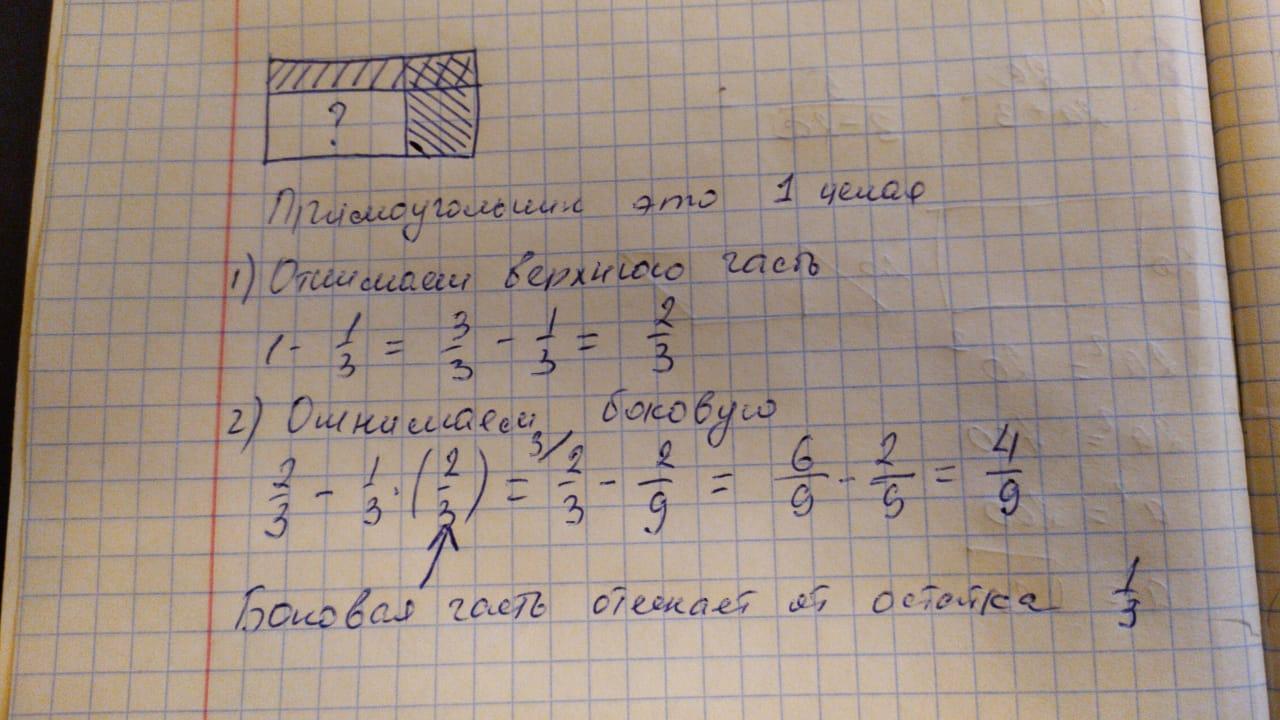 ?
Прямоугольник это 1 целая
1) Отнимаем верхнюю часть
1 - 1/3 = 3/3 - 1/3 = 2/3
2) Отнимаем боковую
2/3 - 1/3 · (2/3) = 3/ 2/3 - 2/9 = 6/9 - 2/9 = 4/9
Боковая часть отсекает от остатка 1/3